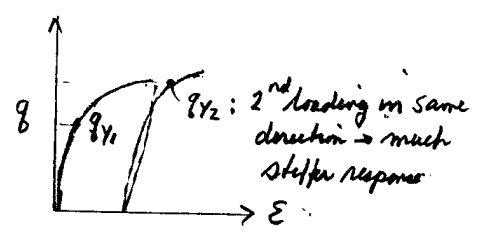 q
q_{Y1}
q_{Y2} : 2^{nd} loading in same
direction → much
stiffer response
ε